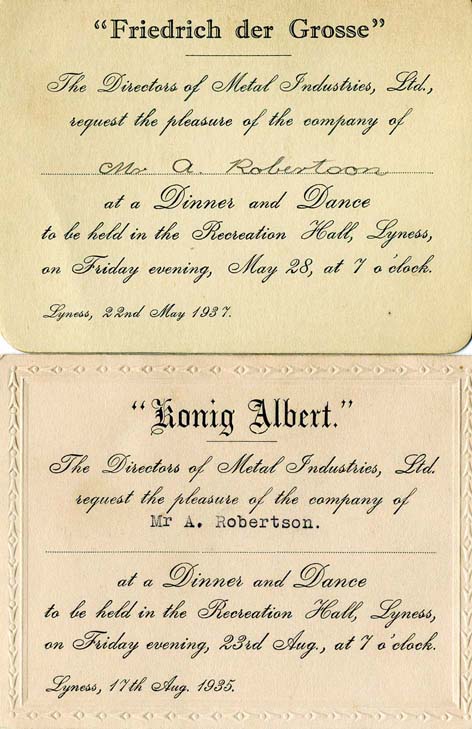 "Friedrich der Grosse"
The Directors of Metal Industries, Ltd.,
request the pleasure of the company of
Mr A. Robertson
at a Dinner and Dance
to be held in the Recreation Hall, Lyness,
on Friday evening, May 28, at 7 o'clock.
Lyness, 22nd May 1937.
"Konig Albert."
The Directors of Metal Industries, Ltd.
request the pleasure of the company of
Mr A. Robertson.
at a Dinner and Dance
to be held in the Recreation Hall, Lyness,
on Friday evening, 23rd Aug., at 7 o'clock.
Lyness, 17th Aug. 1935.